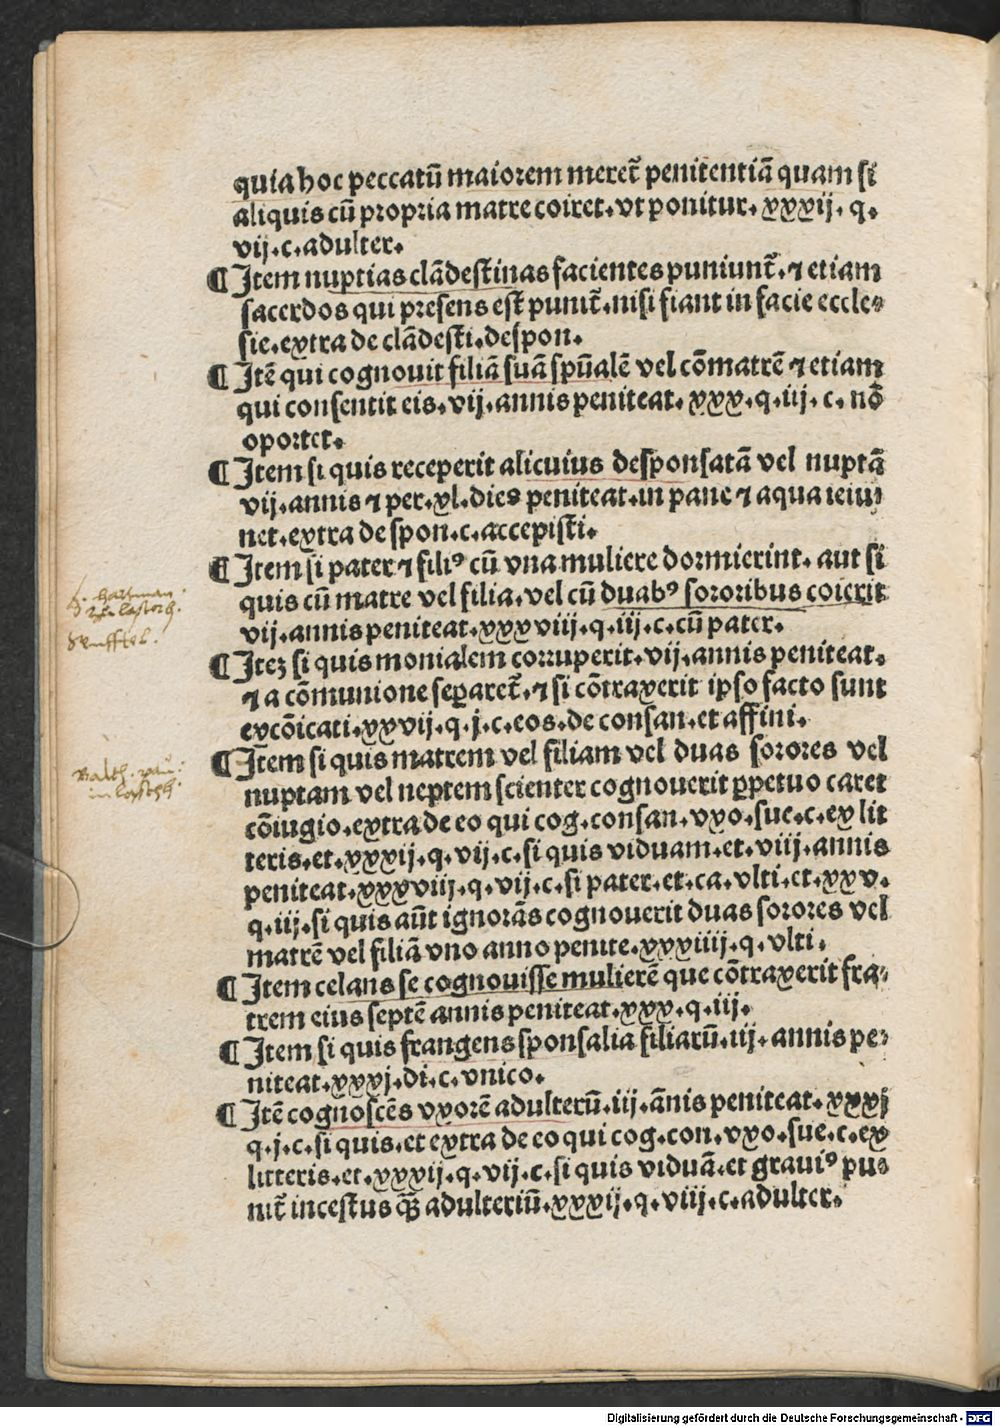 quia hoc peccatū maiorem meret̄ penitentiā quam si
aliquis cū propria matre coiret. vt ponitur. xxxij. q.
vij. c. adulter.
¶ Item nuptias clādestinas facientes puniunt̄. ⁊ etiam
sacerdos qui presens est punit̄. nisi fiant in facie eccle⸗
sie. extra de clādesti. despon.
¶ Itē qui cognouit filiā suā spūalē vel cōmatrē ⁊ etiam
qui consentit eis. vij. annis peniteat. xxx. q. iij. c. nō
oportet.
¶ Item si quis receperit alicuius desponsatā vel nuptā
vij. annis ⁊ per. xl. dies peniteat. in pane ⁊ aqua ieiu⸗
net. extra de spon. c. accepisti.
¶ Item si pater ⁊ filiꝰ cū vna muliere dormierint. aut si
quis cū matre vel filia. vel cū duabꝰ sororibus coierit
vij. annis peniteat. xxxviij. q. iij. c. cū pater.
¶ Iteꝫ si quis monialem corruperit. vij. annis peniteat.
⁊ a cōmunione separet̄. ⁊ si cōtraxerit ipso facto sunt
excōicati. xxvij. q. j. c. eos. de consan. et affini.
¶ Item si quis matrem vel filiam vel duas sorores vel
nuptam vel neptem scienter cognouerit ꝑpetuo caret
cōiugio. extra de eo qui cog. consan. vxo. sue. c. ex lit
teris. et. xxxij. q. vij. c. si quis viduam. et. viij. annis
peniteat. xxxviij. q. vij. c. si pater. et. ca. vlti. et. xxv.
q. iij. si quis aūt ignorās cognouerit duas sorores vel
matrē vel filiā vno anno penite. xxxiiij. q. vlti.
¶ Item celans se cognouisse mulierē que cōtraxerit fra⸗
trem eius septē annis peniteat. xxx. q. iij.
¶ Item si quis frangens sponsalia filiarū. iij. annis pe⸗
niteat. xxxj. di. c. vnico.
¶ Itē cognoscēs vxorē adulterū. iij. ānis peniteat. xxxj
q. j. c. si quis. et extra de eo qui cog. con. vxo. sue. c. ex
litteris. et. xxxij. q. vij. c. si quis viduā. et grauiꝰ pu⸗
nit̄ incestus q̄ȝ adulteriū. xxxij. q. viij. c. adulter.
Digitalisierung gefördert durch die Deutsche Forschungsgemeinschaft - DFG